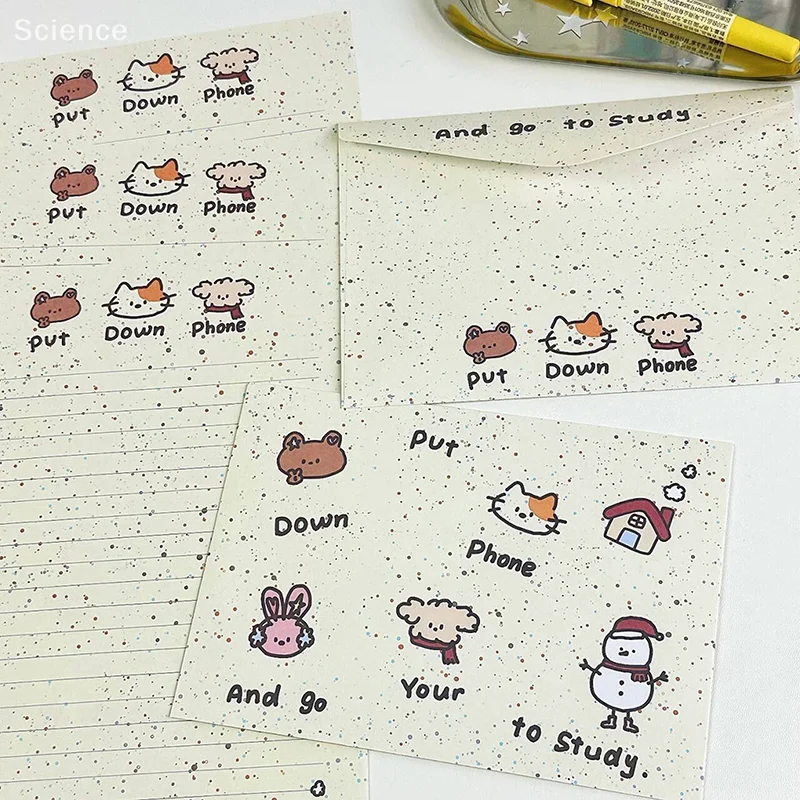 Science
Put Down Phone
Put Down Phone
Put Down Phone
And go to Study.
Put Down Phone
Put
Down
Phone
And go
Your
to Study.